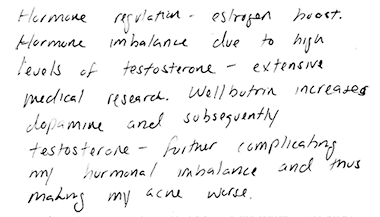 Hormone regulation - estrogen boost.
Hormone imbalance due to high
levels of testosterone - extensive
medical research. Wellbutrin increases
dopamine and subsequently
testosterone - further complicating
my hurmonal imbalance and thus
making my acne worse.